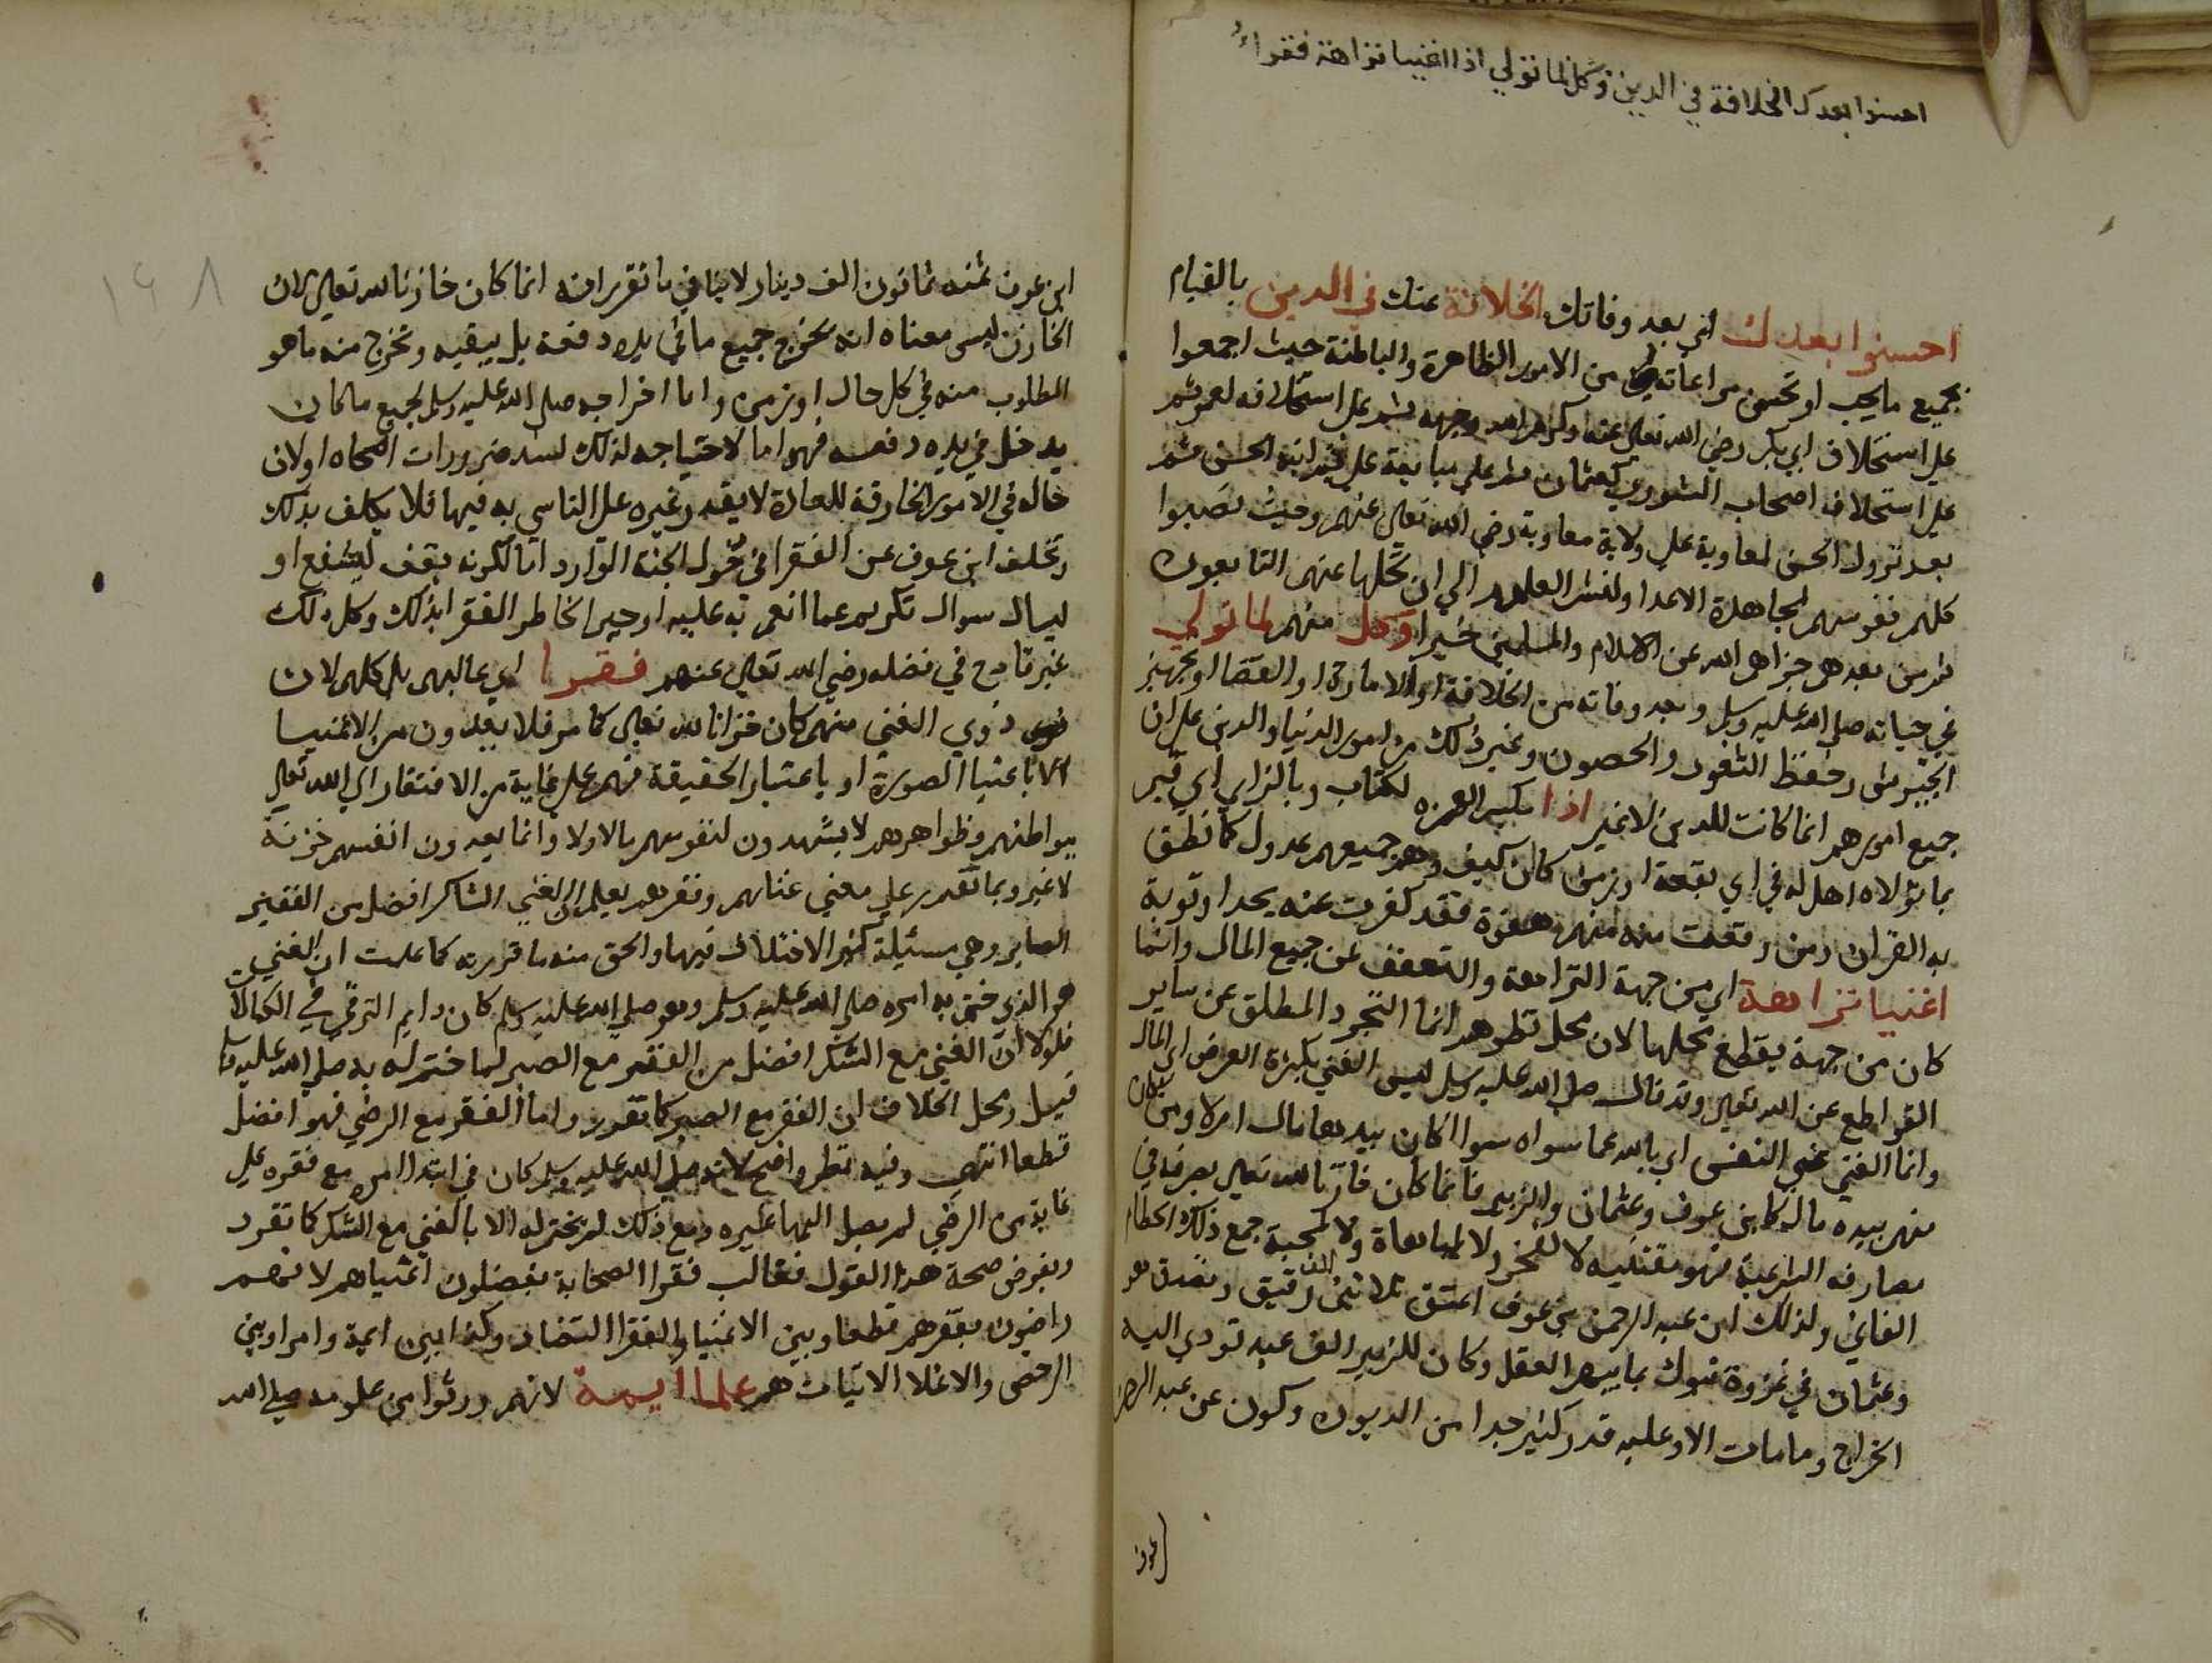 احسنوا بعدك الخلافة في الدين وكل لما تولي اذا اغنيا نزاهة فقراء
احسنوا بعدك اي بعد وفاتك الخلافة عنك في الدين بالقيام
بجميع ما يجب او تحسن مراعاته من الامور الظاهرة والباطنة حيث اجمعوا
علي استخلاف ابي بكر رضي الله تعالي عنه وكرم الله وجهه ثم علي استخلافه لعمر ثم
علي استخلاف اصحاب الشوري لعثمان ثم علي مبايعة علي ثم ابنه الحسن ثم
بعد نزول الحسن لمعاوية علي ولاية معاوية رضي الله تعالي عنهم وحيث نصبوا
كلهم نفوسهم لمجاهدة الاعدا ولنشر العلوم الي ان تحملها عنهم التابعون
ثم من بعدهم جزاهم الله عن الاسلام والمسلمين خيرا وكل منهم لما تولي
في حياته صلي الله عليه وسلم وبعد وفاته من الخلافة او الامارة او القضا او تجهيز
الجيوش وحفظ الثغور والحصون وغير ذلك من امور الدنيا والدين علي ان
جميع امورهم انما كانت للدين لا غير اذا بكسر الهمزه لكتاب وبالزاي اي قيم
بما تولاه اهل له في اي بقعة او زمن كان كيف وهم جميعهم عدول كما نطق
به القران ومن وقعت منه منهم هفوة فقد كفرت عنه بحد او توبة
اغنيا نزاهة اي من جهة النزاهة والتعفف عن جميع المال وانما
كان من جهة يقطع بحلها لان محل نظرهم انما التجرد المطلق عن ساير
القواطع عن الله تعالي وقد قال صلي الله عليه وسلم ليس الغني بكثرة العرض اي المال
وانما الغني غني النفس اي بالله عما سواه سوا كان بيدها مال ام لا ومن كان
منهم بيده مال كابن عوف وعثمان والزبير فانما كان خازنا لله تعالي يصرفه في
مصارفه الشرعية فهو مقتنيه لا لفخر ولا لمباهاة ولا لمحبة جمع ذلك الحطام
الفاني ولذلك ابن عبد الرحمن بن عوف اعتق ثلاثين الف رقيق وتصدق هو
وعثمان في غزوة تبوك بما يبهر العقل وكان للزبير الف عبد تودي اليه
الخراج وما مات الا وعليه قدر كثير جدا من الديون وكون عن عبد الرحمن
بن عوف
١٦٨
ابن عوف ثمنه ثمانون الف دينار لا ينافي ما تقرر انه انما كان خازنا لله تعالي لان
الخازن ليس معناه انه يخرج جميع ما في يده دفعة بل يبقيه ويخرج منه ما هو
المطلوب منه في كل حال او زمن واما اخراجه صلي الله عليه وسلم لجميع ما كان
يدخل في يده دفعة فهو اما لاحتياجه لذلك لسد ضرورات اصحابه او لان
حاله في الامور الخارقة للعادة لا يقدر غيره علي التاسي به فيها فلا يكلف بذلك
وتخلف ابن عوف عن الفقرا في دخول الجنة الوارد اما لكونه يقف ليشفع او
ليسال سوال تكريم عما انعم به عليه او جبرا لخاطر الفقرا بذلك وكل ذلك
غير قادح في فضله رضي الله تعالي عنهم فقرا اي غالبهم بل كلهم لان
ذوي الغني منهم كان خزانا لله تعالي كما مر فلا يعدون من الاغنيا
الا باعتبار الصورة او باعتبار الحقيقة فهم علي غاية من الافتقار الي الله تعالي
ببواطنهم وظواهرهم لا يشهدون لنفوسهم مالا ولا وانما يعدون انفسهم خزنة
لا غير وبما تقدم علي معني غناهم وفقرهم يعلم ان الغني الشاكر افضل من الفقير
الصابر وهي مسئلة كثر الاختلاف فيها والحق منه ما قررته كما علمت ان الغني
هو الذي ختم به امره صلي الله عليه وسلم وهو صلي الله عليه وسلم كان دايم الترقي في الكمالات
فلولا ان الغني مع الشكر افضل من الفقر مع الصبر لما ختم له به صلي الله عليه وسلم
قيل ومحل الخلاف ان الفقر مع الصبر كما تقرر واما الفقر مع الرضي فهو افضل
قطعا انتهي وفيه نظر واضح لانه صلي الله عليه وسلم كان في ابتدا امره مع فقره علي
غاية من الرضي لم يصل اليها غيره ومع ذلك لم يختم له الا بالغني مع الشكر كما تقرر
وبفرض صحة هذا القول فغالب فقرا الصحابة يفضلون اغنياهم لانهم
راضون بفقرهم قطعا وبين الاغنيا والفقرا التضاد وكذا بين ايمة وامرا وبين
الرخص والاغلا الاتيات هم علما ايمة لانهم ورثوا من علومه صلي الله